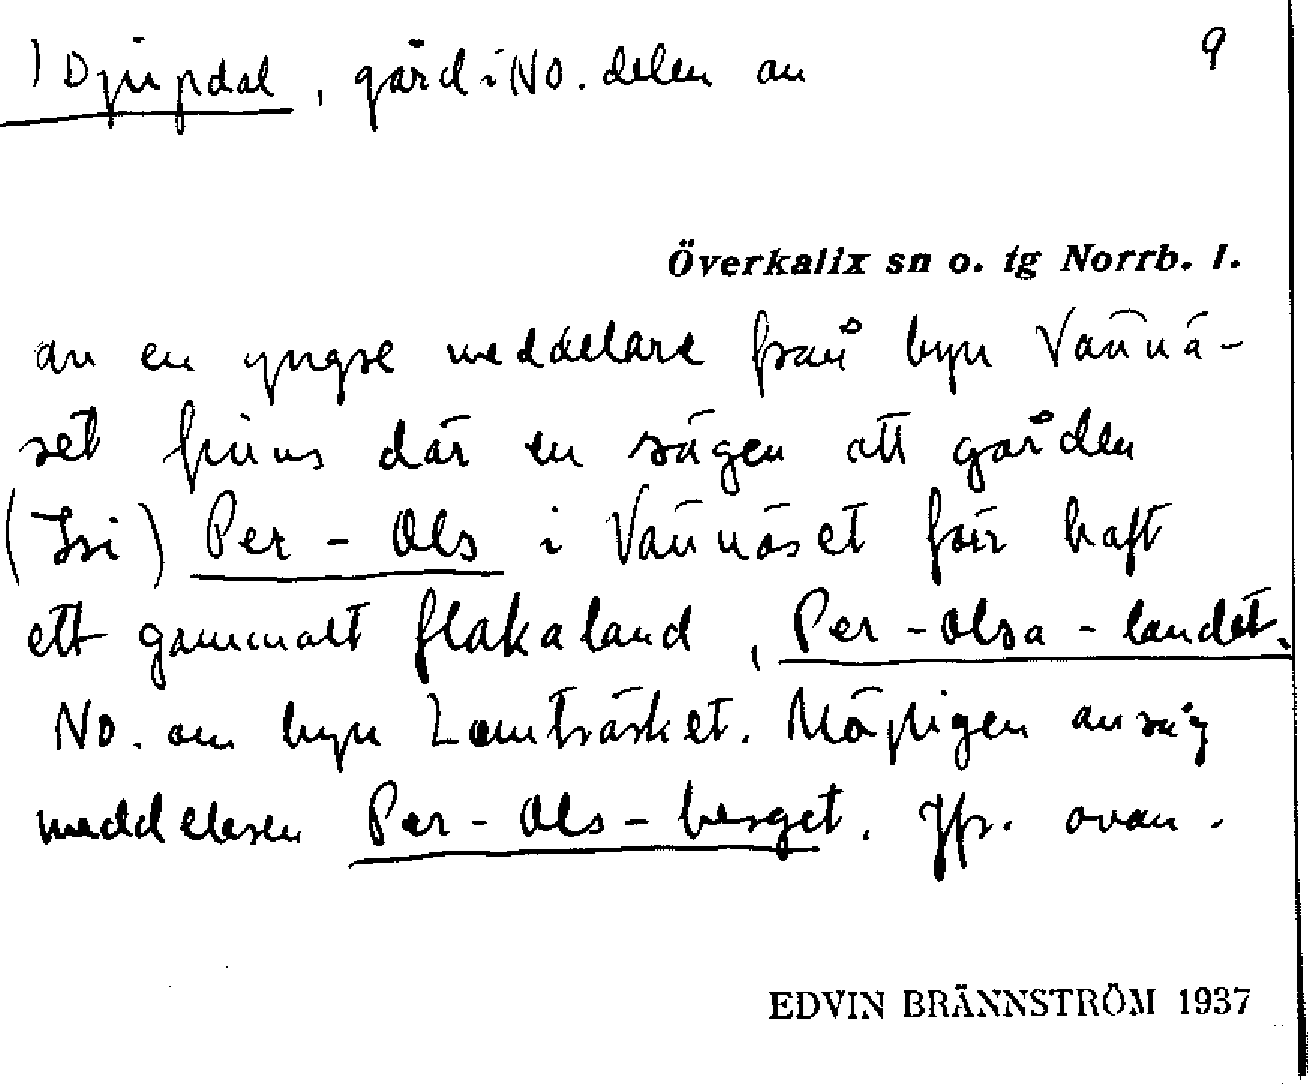 1 Djupdal, gård i NO. delen av
9
Överkalix sn o. tg Norrb. l.
av en yngre meddelare från byn Vännä-
set finns där en sägen att gården
Per-Ols i Vännäset förr haft
ett gammalt flakaland, Per-Olsa-landet,
NO. om byn Lomträsket. Möjligen avsåg
meddelaren Per-Ols-berget. Jfr. ovan.
EDVIN BRÄNNSTRÖM 1937